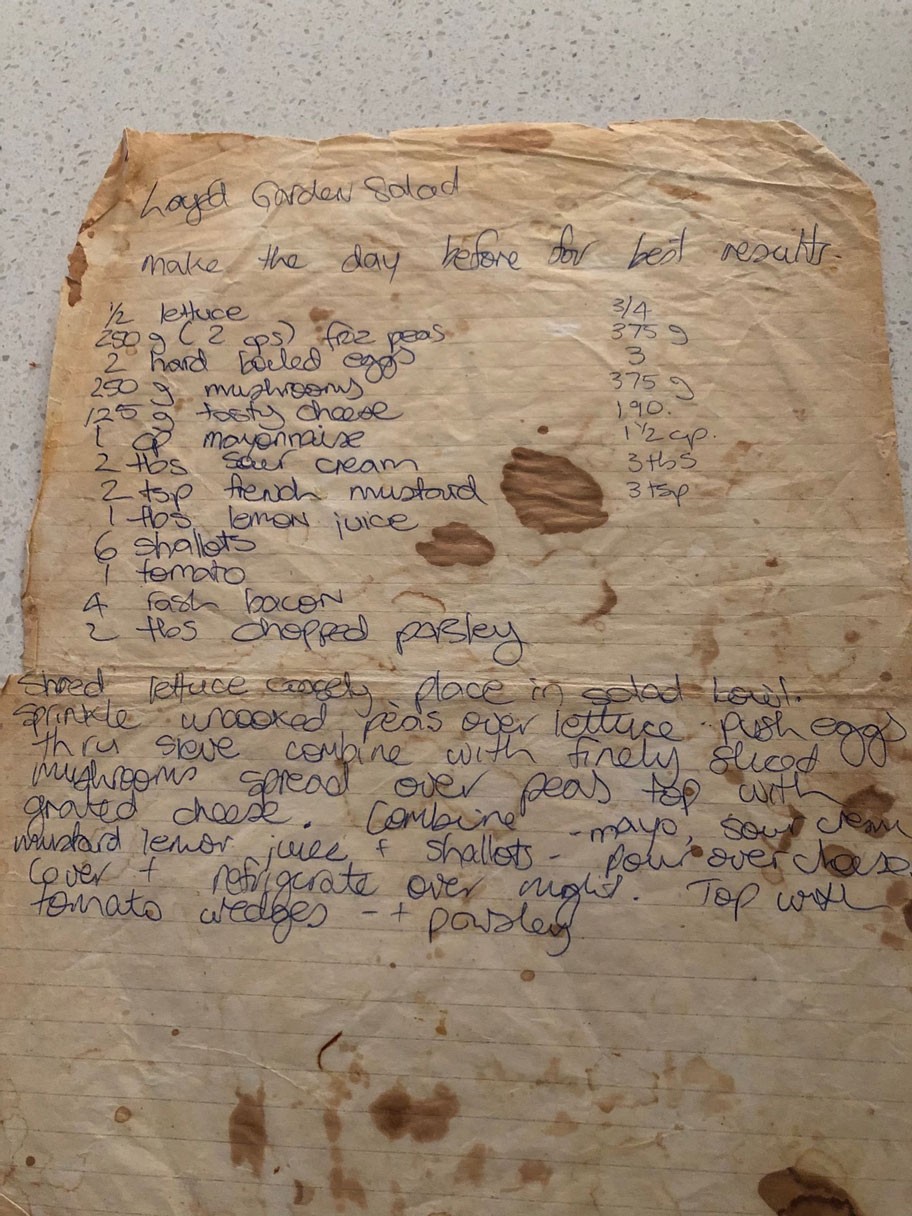 Layd Garden Salad
make the day before for best results.
1/2 lettuce 3/4
250 g (2 cps) froz peas 375 g
2 hard boiled eggs 3
250 g mushrooms 375 g
125 g tasty cheese 190.
1 cp mayonnaise 1 1/2 cp.
2 tbs sour cream 3 tbs
2 tsp french mustard 3 tsp
1 tbs lemon juice
6 shallots
1 tomato
4 rash bacon
2 tbs chopped parsley
Shred lettuce place in salad bowl.
sprinkle uncooked peas over lettuce. push eggs
thru sieve combine with finely sliced
mushrooms spread over peas top with
grated cheese. Combine - mayo, sour cream
mustard lemon juice + shallots - pour over cheese.
Cover + refrigerate over night. Top with
tomato wedges - + parsley